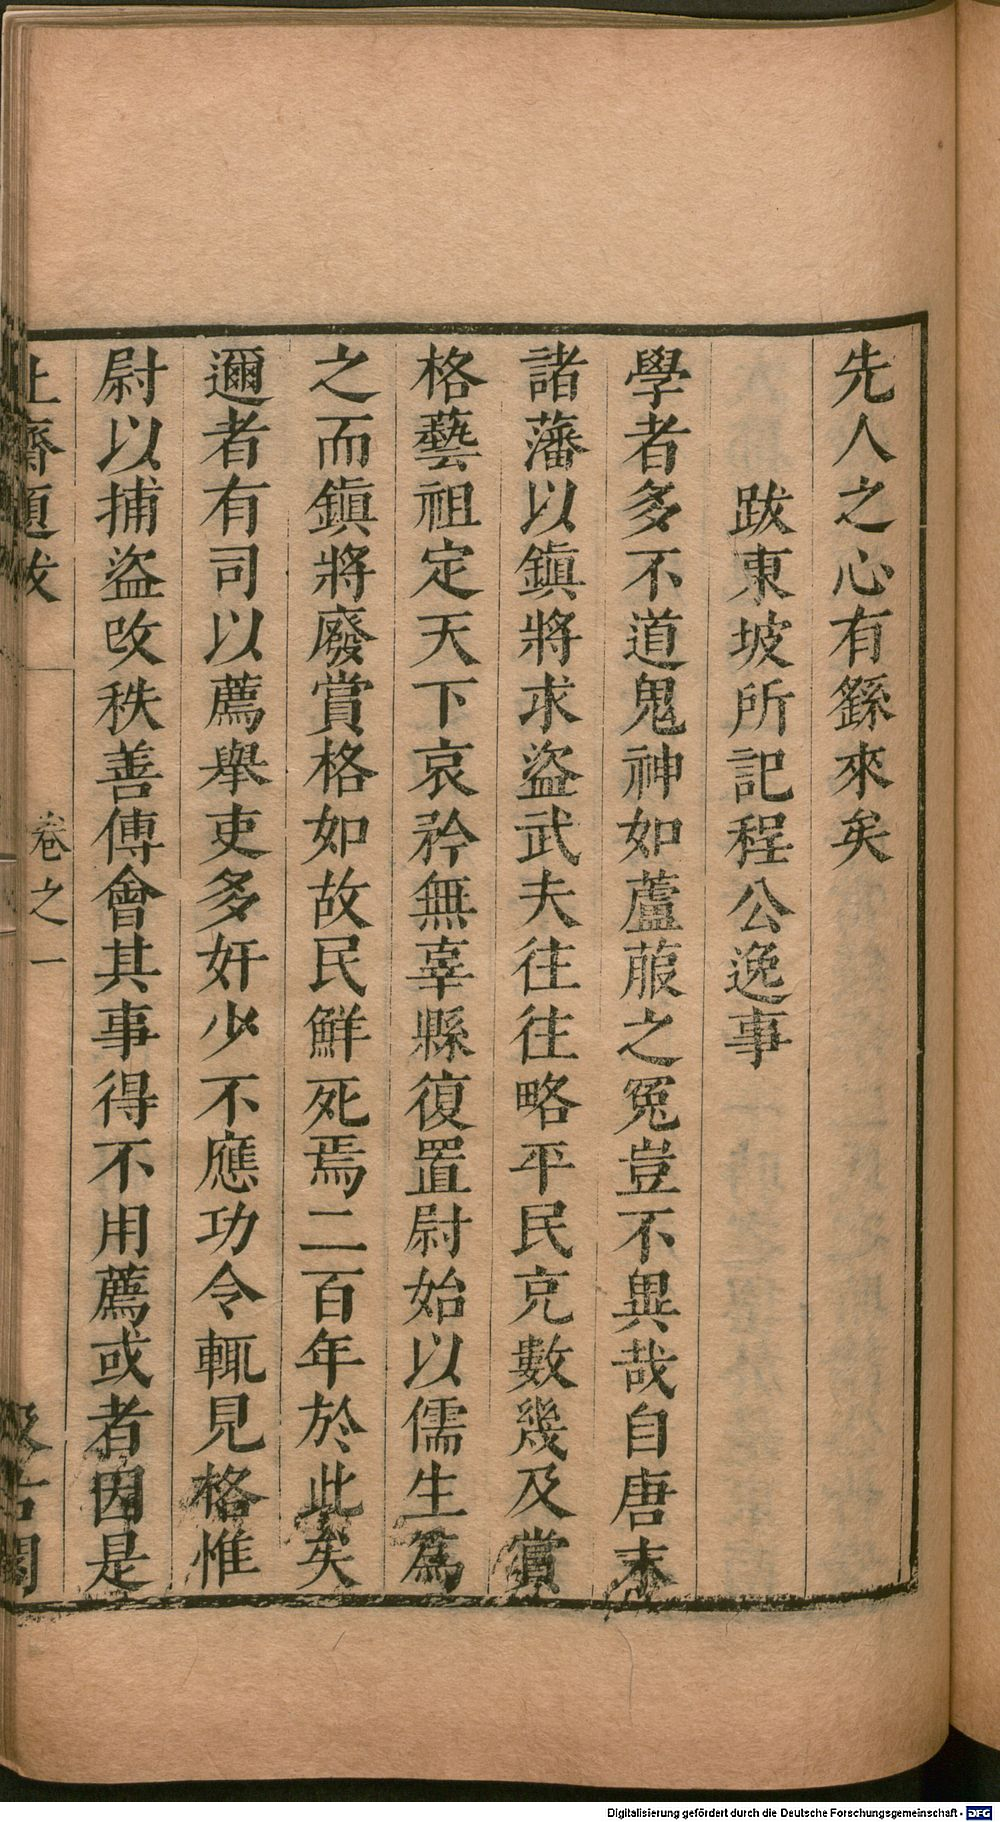 先人之心有繇來矣
跋東坡所記程公逸事
學者多不道鬼神如蘆菔之冤豈不異哉自唐末
諸藩以鎭將求盜武夫往往略平民充數幾及賞
格藝祖定天下哀矜無辜縣復置尉始以儒生爲
之而鎭將廢賞格如故民鮮死焉二百年於此矣
邇者有司以薦舉吏多奸少不應功令輒見格惟
尉以捕盜改秩善傅會其事得不用薦或者因是
止齋題跋 卷之一 汲古閣
Digitalisierung gefördert durch die Deutsche Forschungsgemeinschaft - DFG